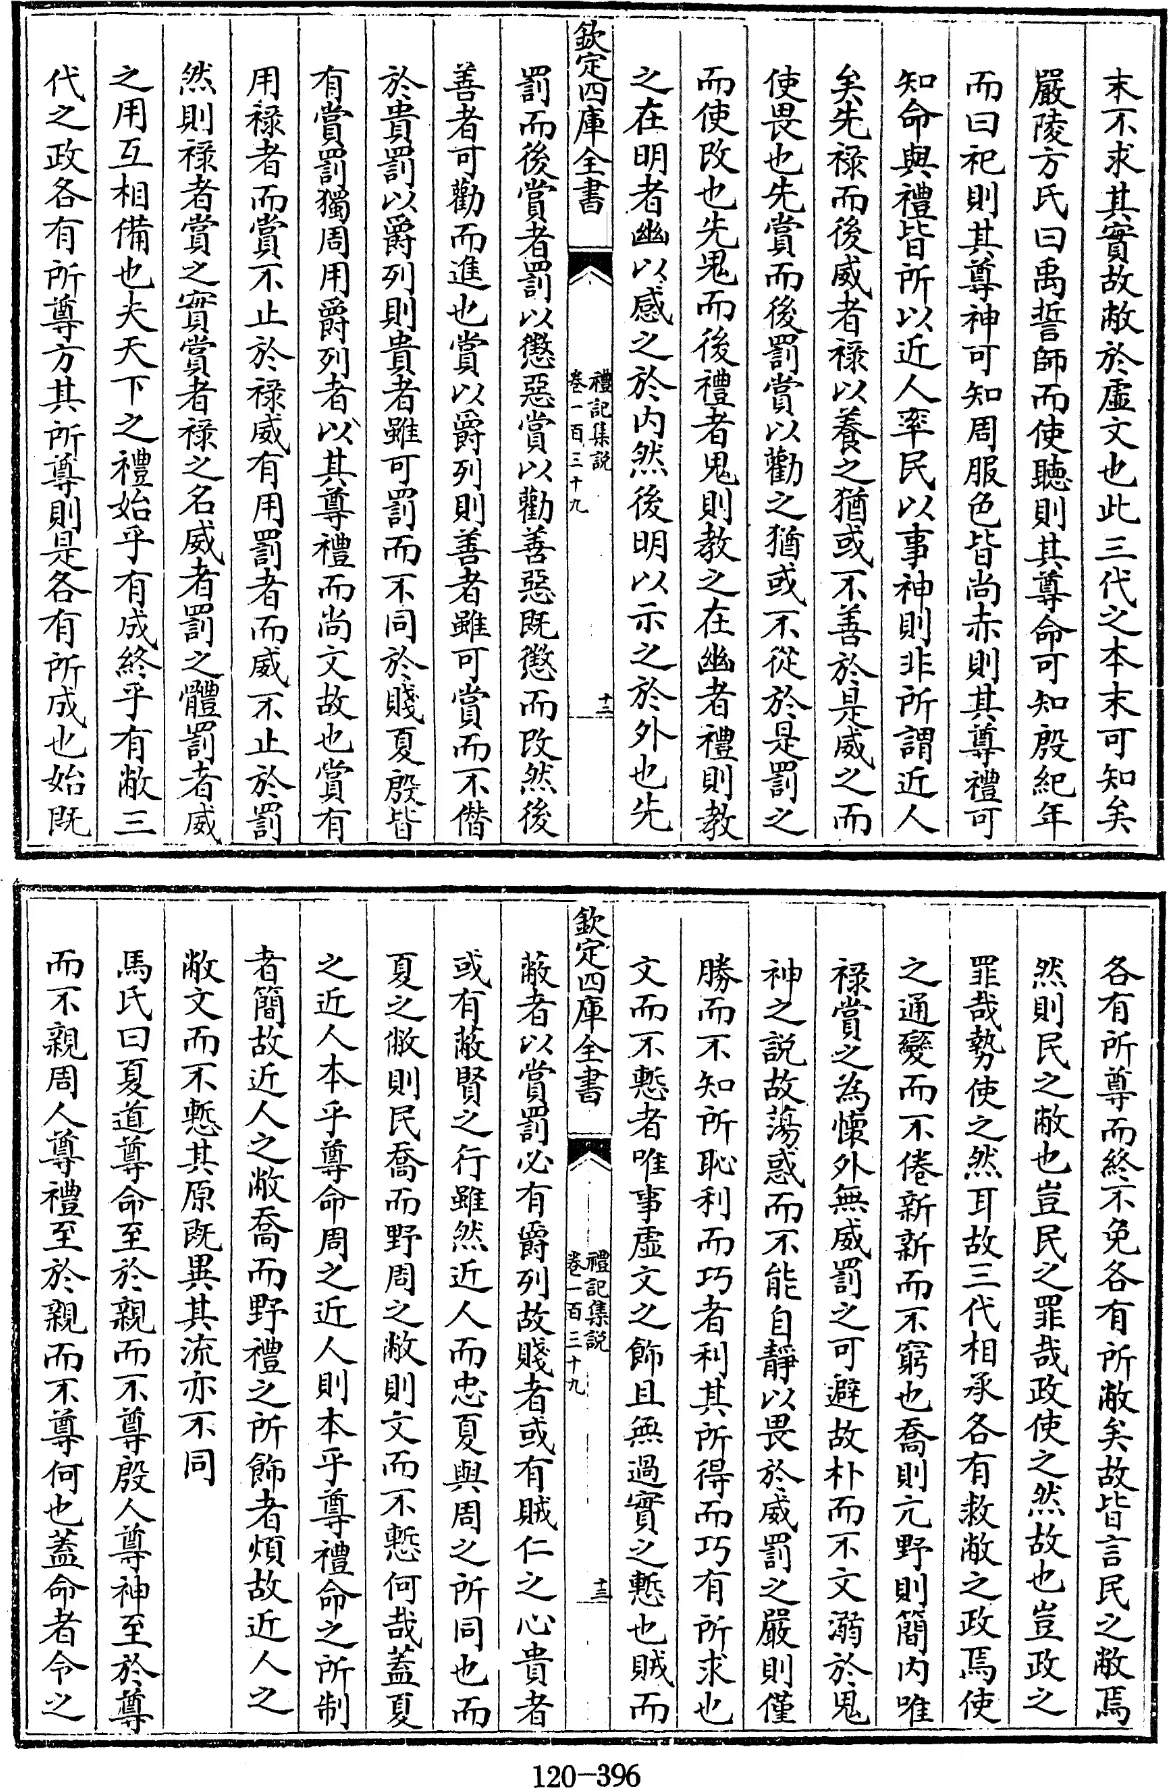 末不求其實故敝於虛文也此三代之本末可知矣
嚴陵方氏曰禹誓師而使聽則其尊命可知殷紀年
而曰祀則其尊神可知周服色皆尚赤則其尊禮可
知命與禮皆所以近人率民以事神則非所謂近人
矣先祿而後威者祿以養之猶或不善於是威之而
使畏也先賞而後罰賞以勸之猶或不從於是罰之
而使改也先鬼而後禮者鬼則教之在幽者禮則教
之在明者幽以感之於内然後明以示之於外也先
欽定四庫全書
禮記集說
卷一百三十九
十二
罰而後賞者罰以懲惡賞以勸善惡既懲而改然後
善者可勸而進也賞以爵列則善者雖可賞而不僭
於貴罰以爵列則貴者雖可罰而不同於賤夏殷皆
有賞罰獨周用爵列者以其尊禮而尚文故也賞有
用祿者而賞不止於祿威有用罰者而威不止於罰
然則祿者賞之實賞者祿之名威者罰之體罰者威
之用互相備也夫天下之禮始乎有成終乎有敝三
代之政各有所尊方其所尊則是各有所成也始既
各有所尊而終不免各有所敝矣故皆言民之敝焉
然則民之敝也豈民之罪哉政使之然故也豈政之
罪哉勢使之然耳故三代相承各有救敝之政焉使
之通變而不倦新新而不窮也喬則亢野則簡内唯
祿賞之為懷外無威罰之可避故朴而不文溺於鬼
神之說故蕩惑而不能自靜以畏於威罰之嚴則僅
勝而不知所恥利而巧者利其所得而巧有所求也
文而不慙者唯事虛文之飾且無過實之慙也賊而
欽定四庫全書
禮記集說
卷一百三十九
十三
蔽者以賞罰必有爵列故賤者或有賊仁之心貴者
或有蔽賢之行雖然近人而忠夏與周之所同也而
夏之敝則民喬而野周之敝則文而不慙何哉蓋夏
之近人本乎尊命周之近人則本乎尊禮命之所制
者簡故近人之敝喬而野禮之所飾者煩故近人之
敝文而不慙其原既異其流亦不同
馬氏曰夏道尊命至於親而不尊殷人尊神至於尊
而不親周人尊禮至於親而不尊何也蓋命者令之
120-396